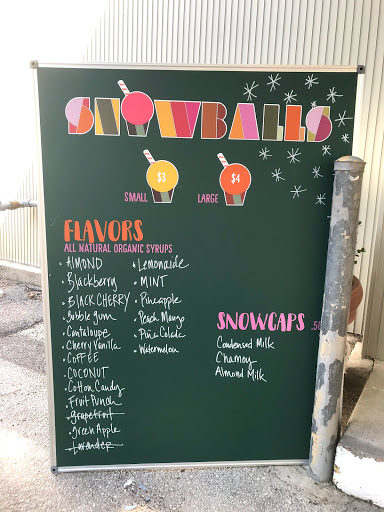 SNOWBALLS
$3
$4
SMALL
LARGE
FLAVORS
ALL NATURAL ORGANIC SYRUPS
• ALMOND
• Blackberry
• BLACK CHERRY
• Bubble gum
• Cantaloupe
• Cherry Vanilla
• COFFEE
• COCONUT
• Cotton Candy
• Fruit Punch
• grapefruit
• green Apple
• Lavender
• Lemonade
• MINT
• Pineapple
• Peach Mango
• Piña Colada
• Watermelon
SNOWCAPS .50
Condensed Milk
Chamoy
Almond Milk